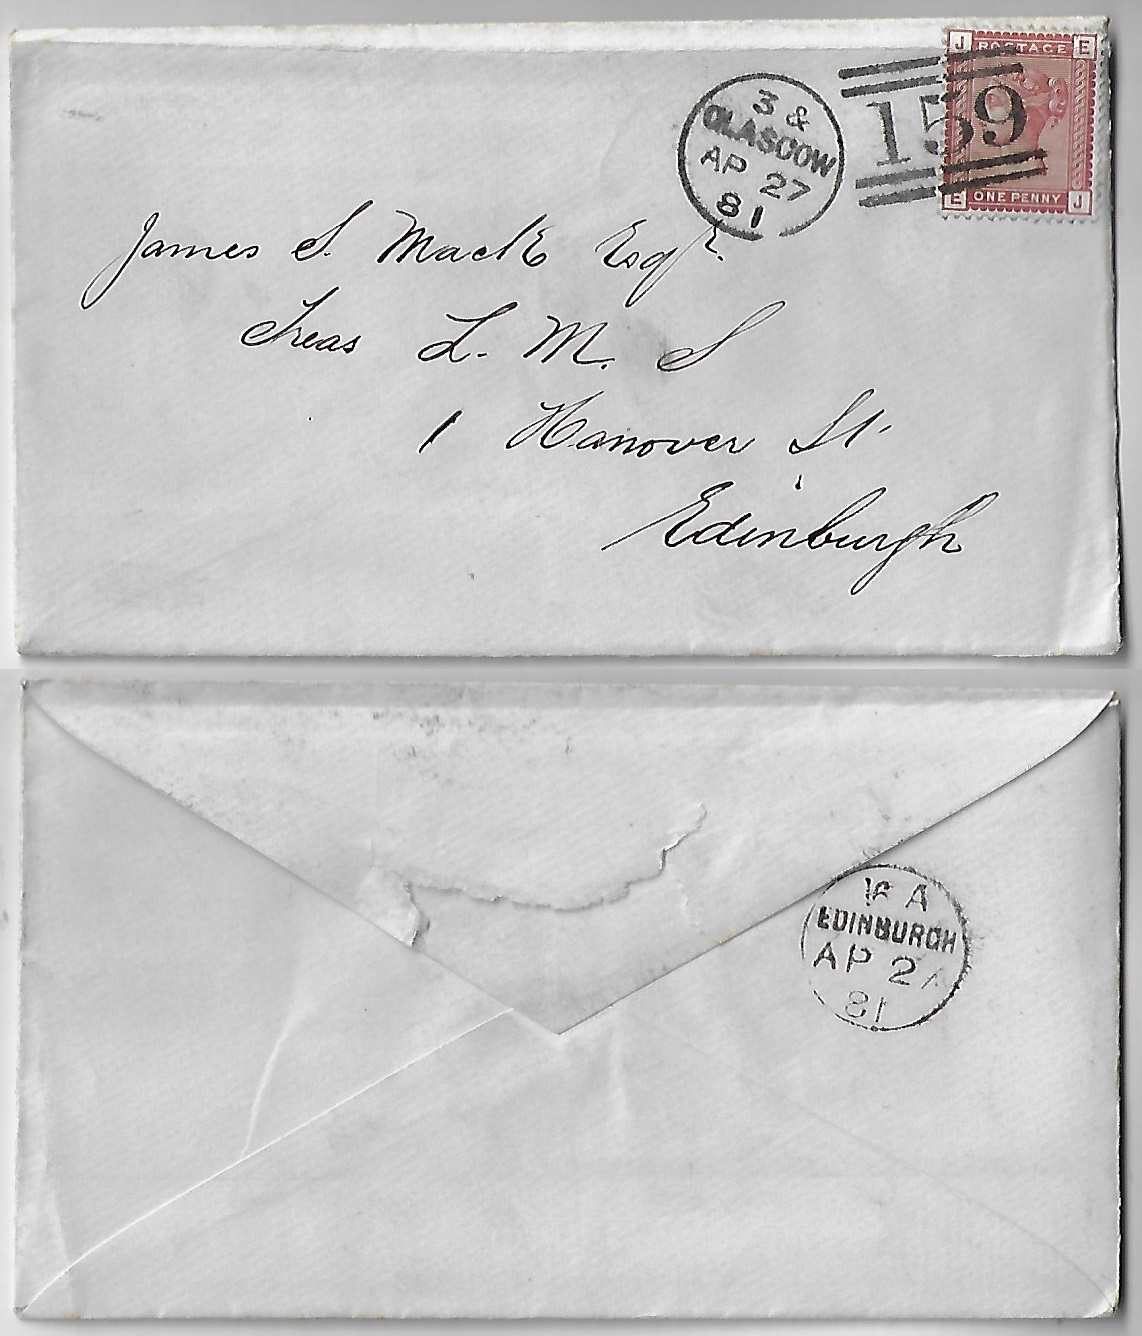 J POSTAGE E
159
E ONE PENNY J
3 &
GLASGOW
AP 27
81
James S. Mack Esqr.
Treas L. M. S
1 Hanover St.
Edinburgh
A
EDINBURGH
AP 27
81